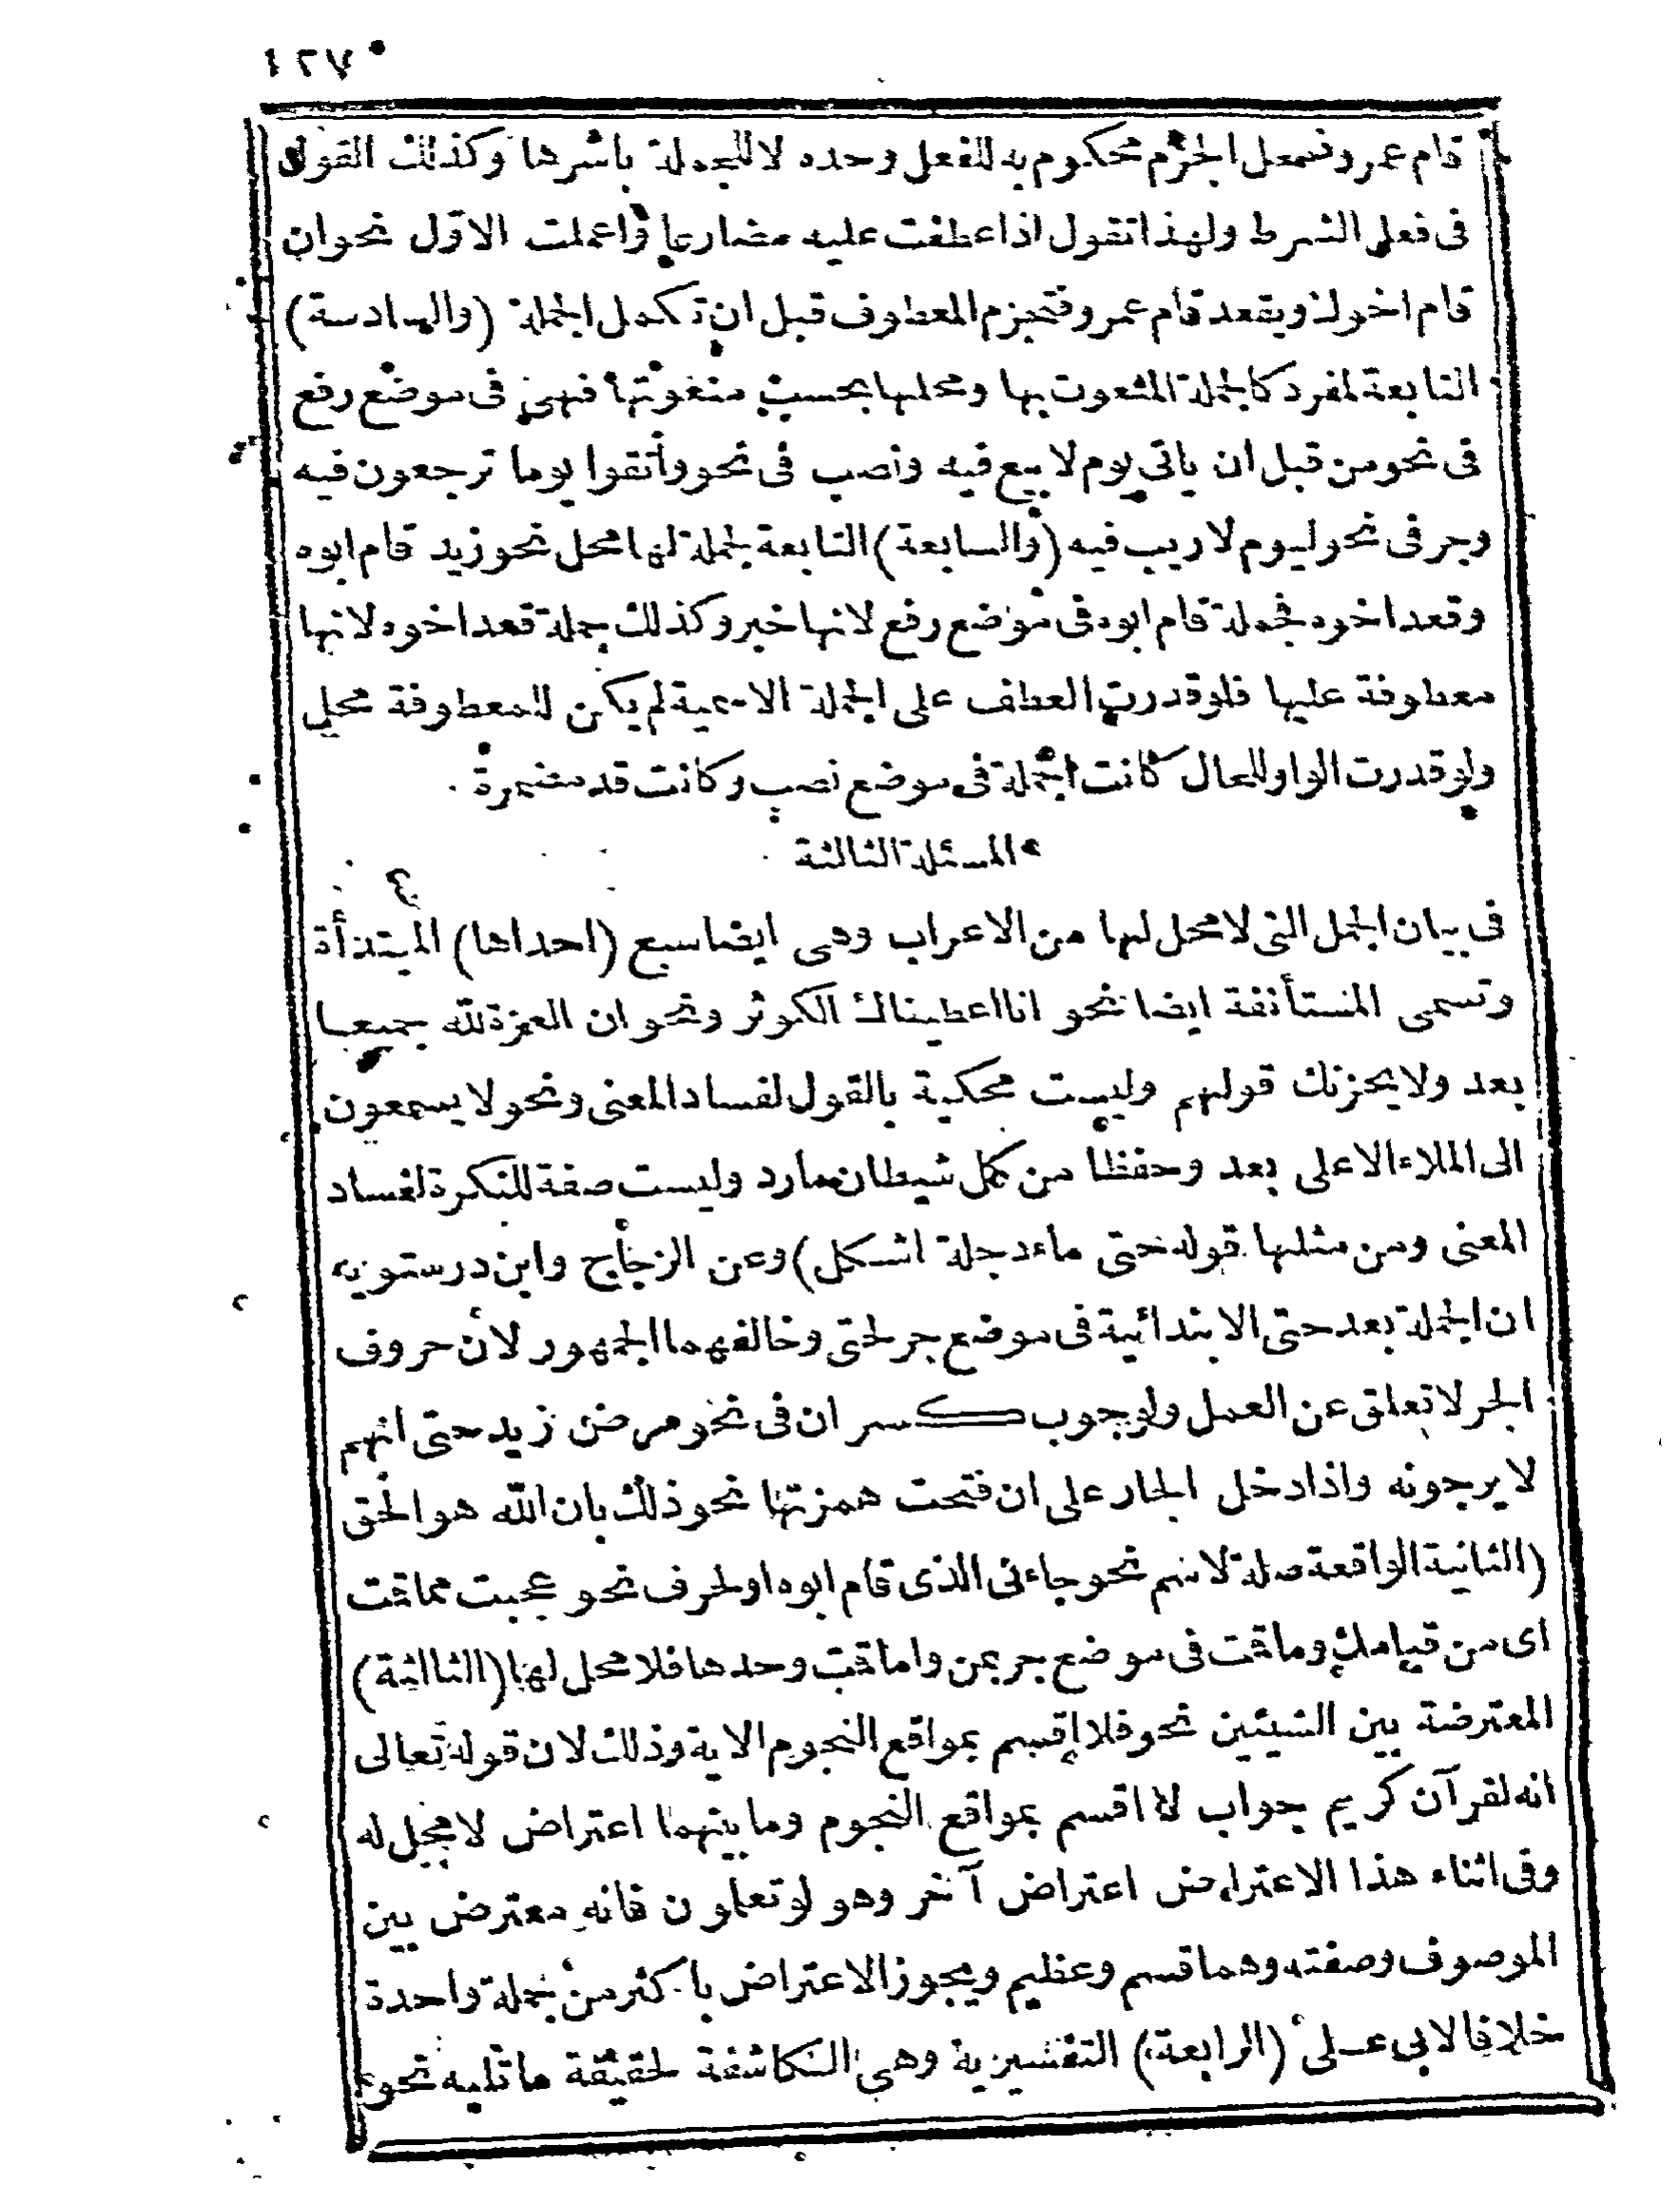 ١٢٧
قام عمرو فمحل الجزم محكوم به للفعل وحده لا للجملة باسرها وكذلك القول
فى فعل الشرط ولهذا تقول اذا عطفت عليه مضارعا واعملت الاول نحو ان
قام اخوك ويقعد قام عمرو فتجزم المعطوف قبل ان تكمل الجملة (والسادسة)
التابعة لمفرد كالجملة المنعوت بها ومحلها بحسب منعوتها فهى فى موضع رفع
فى نحو من قبل ان ياتى يوم لا بيع فيه ونصب فى نحو واتقوا يوما ترجعون فيه
وجر فى نحو ليوم لا ريب فيه (والسابعة) التابعة لجملة لها محل نحو زيد قام ابوه
وقعد اخوه فجملة قام ابوه فى موضع رفع لانها خبر وكذلك جملة قعد اخوه لانها
معطوفة عليها فلو قدرت العطف على الجملة الاسمية لم يكن للمعطوفة محل
ولو قدرت الواو للحال كانت الجملة فى موضع نصب وكانت قد مضمرة
المسئلة الثالثة
فى بيان الجمل التى لا محل لها من الاعراب وهى ايضا سبع (احداها) المبتدأة
وتسمى المستأنفة ايضا نحو انا اعطيناك الكوثر ونحو ان العزة لله جميعا
بعد ولا يحزنك قولهم وليست محكية بالقول لفساد المعنى ونحو لا يسمعون
الى الملاء الاعلى بعد وحفظا من كل شيطان مارد وليست صفة للنكرة لفساد
المعنى ومن مثلها قوله حتى ماء دجلة اشكل) وعن الزجاج وابن درستويه
ان الجملة بعد حتى الابتدائية فى موضع جر لحتى وخالفهما الجمهور لان حروف
الجر لا تعلق عن العمل ولوجوب كسر ان فى نحو مرض زيد حتى انهم
لا يرجونه واذا دخل الجار على ان فتحت همزتها نحو ذلك بان الله هو الحق
(الثانية الواقعة صلة لاسم نحو جاءنى الذى قام ابوه او لحرف نحو عجبت مما قمت
اى من قيامك وما قمت فى موضع جر بمن واما قمت وحدها فلا محل لها (الثالثة)
المعترضة بين الشيئين نحو فلا اقسم بمواقع النجوم الاية وذلك لان قوله تعالى
انه لقرآن كريم جواب لا اقسم بمواقع النجوم وما بينهما اعتراض لا محل له
وفى اثناء هذا الاعتراض اعتراض آخر وهو لو تعلمون فانه معترض بين
الموصوف وصفته وهما قسم وعظيم ويجوز الاعتراض باكثر من جملة واحدة
خلافا لابى على (الرابعة) التفسيرية وهى الكاشفة لحقيقة ما تليه نحو